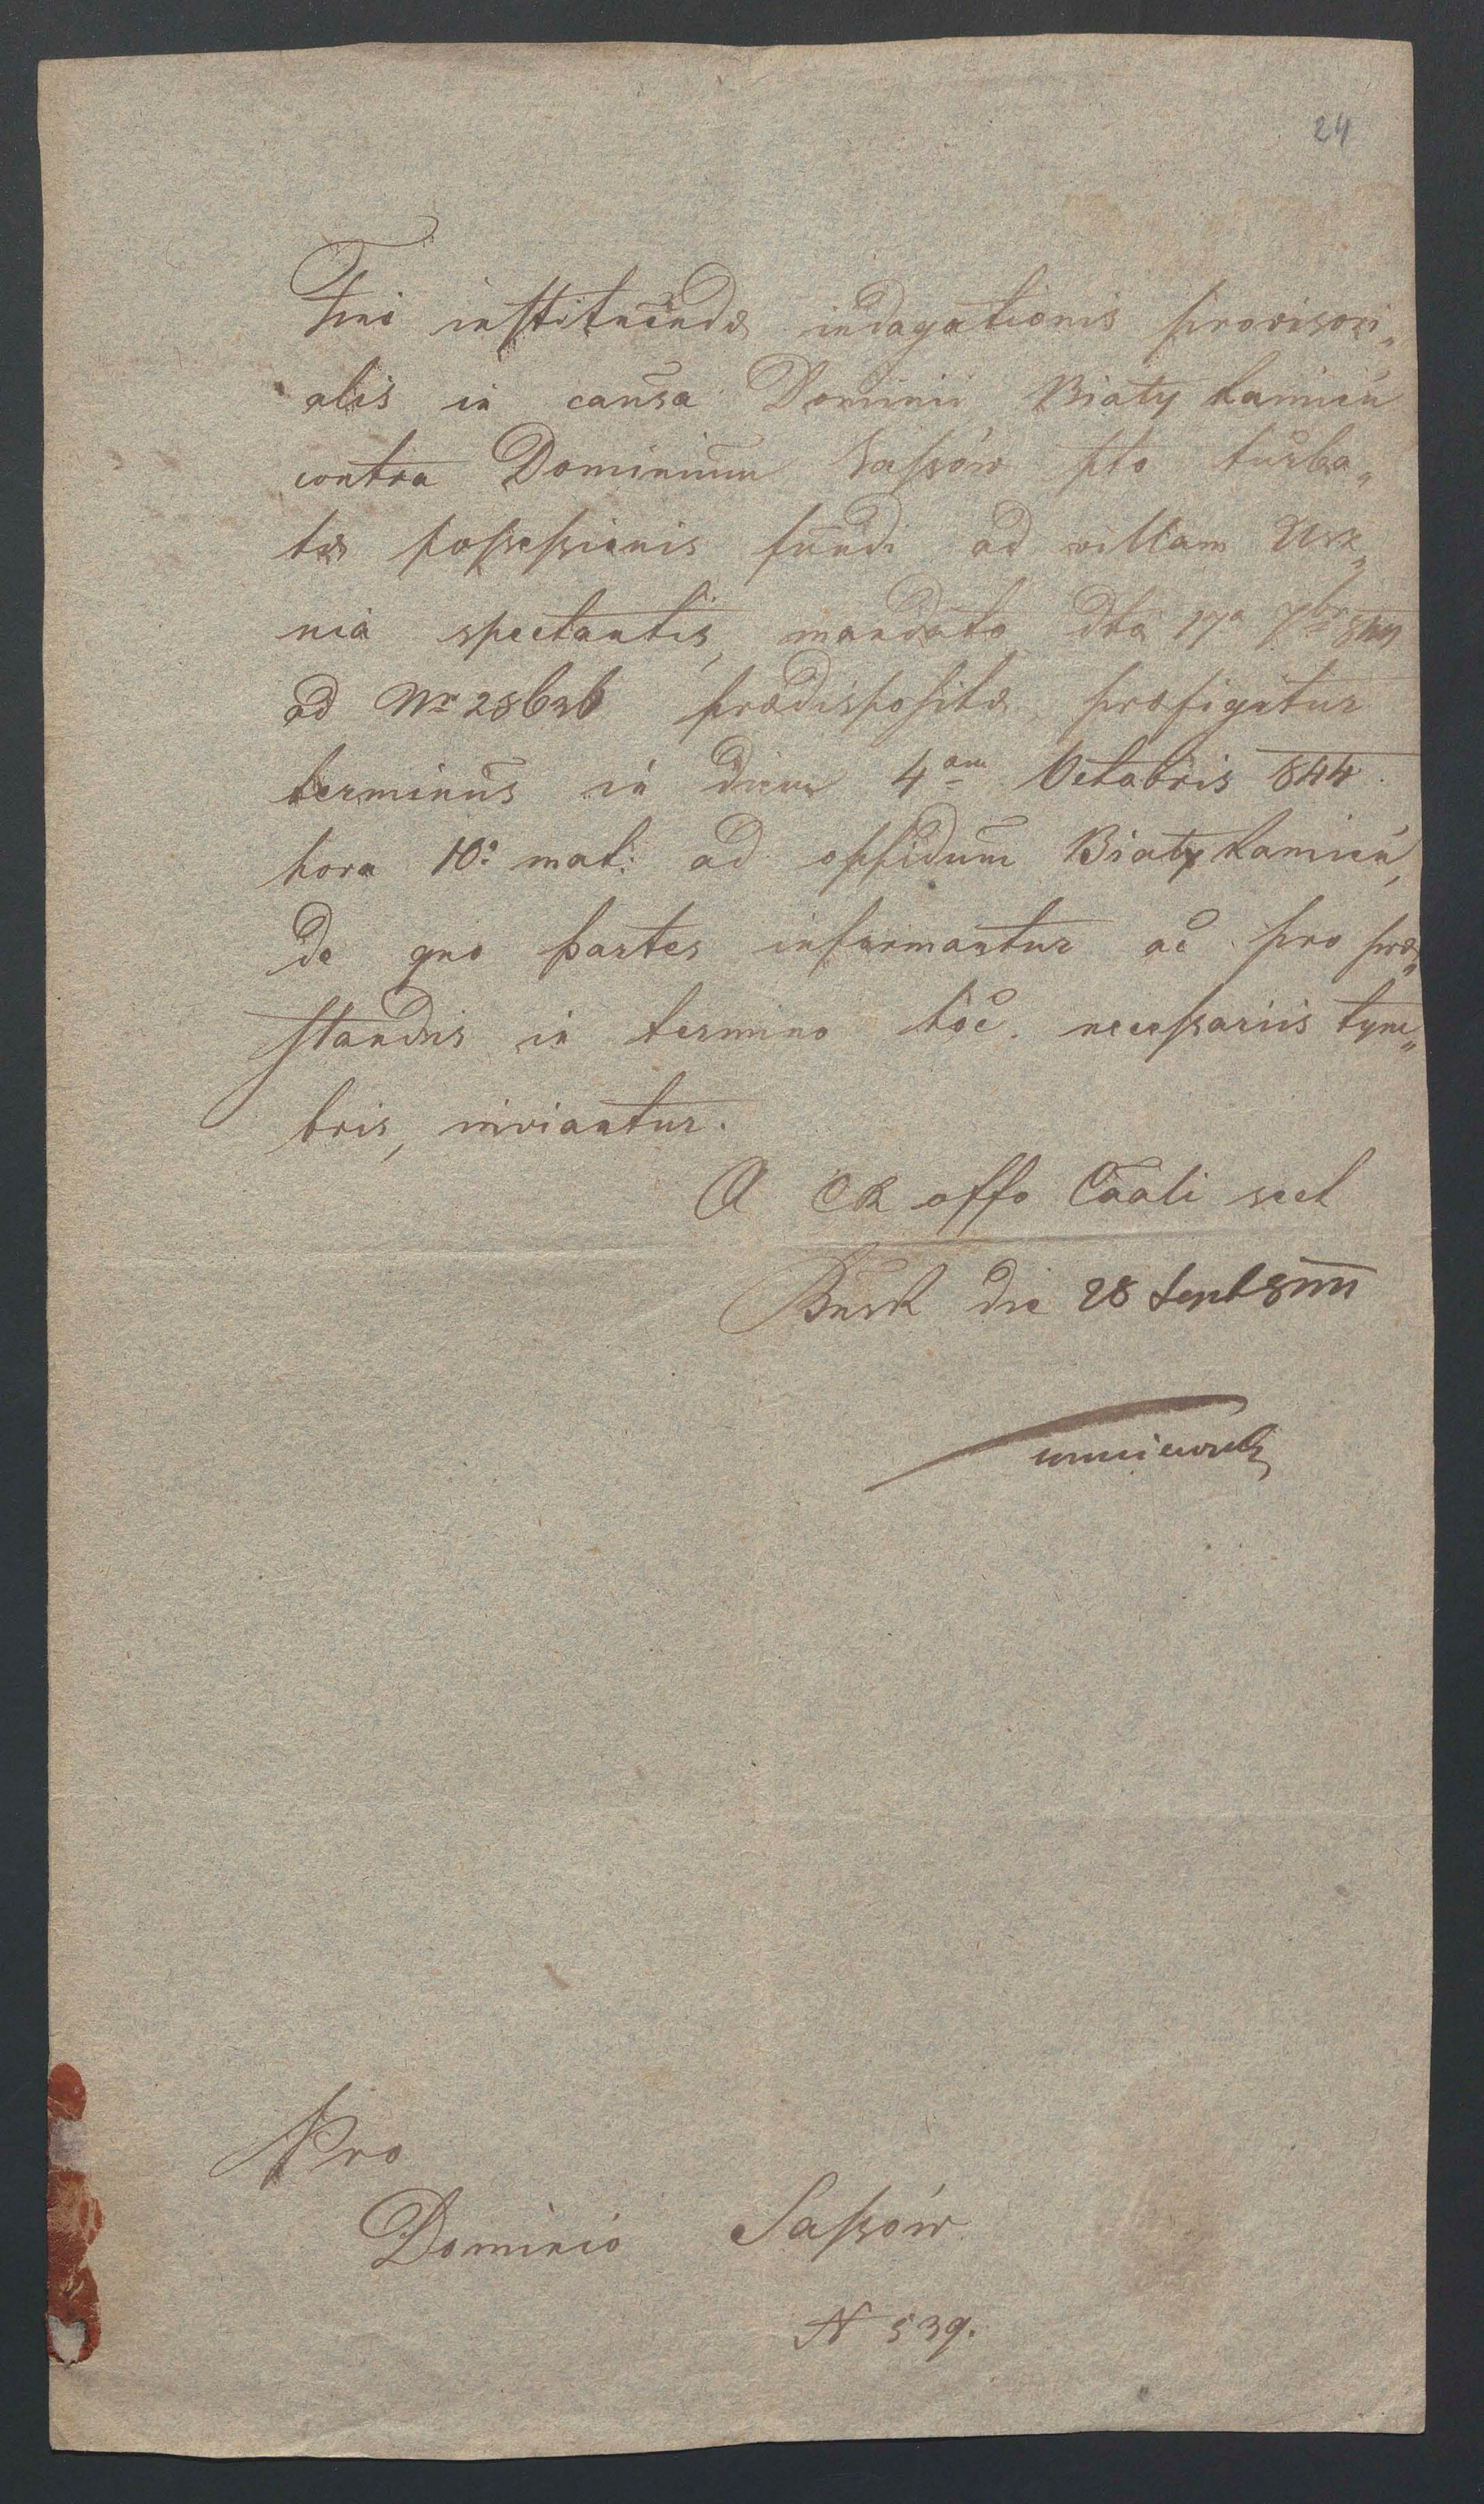 24
Fini instituendæ indagationis provisori„
alis in causa Dominii Biały kamień
contra Dominium Sassów pto turba„
tæ possessionis fundi ad villam Usz„
nia spectantis, mandato dto 17a 7br 844
ad Nr 28636 prædispositæ, præfigitur
terminus in diem 4am Octobris 844
hora 10: mat: ad oppidum Biały kamień,
de quo partes informantur ac pro præ„
standis in termino hoc necessariis tym„
bris, inviantur.
A CR offo Caali sect
Busk die 28 Sept 844
Pro
Dominio Sassów
N 539.